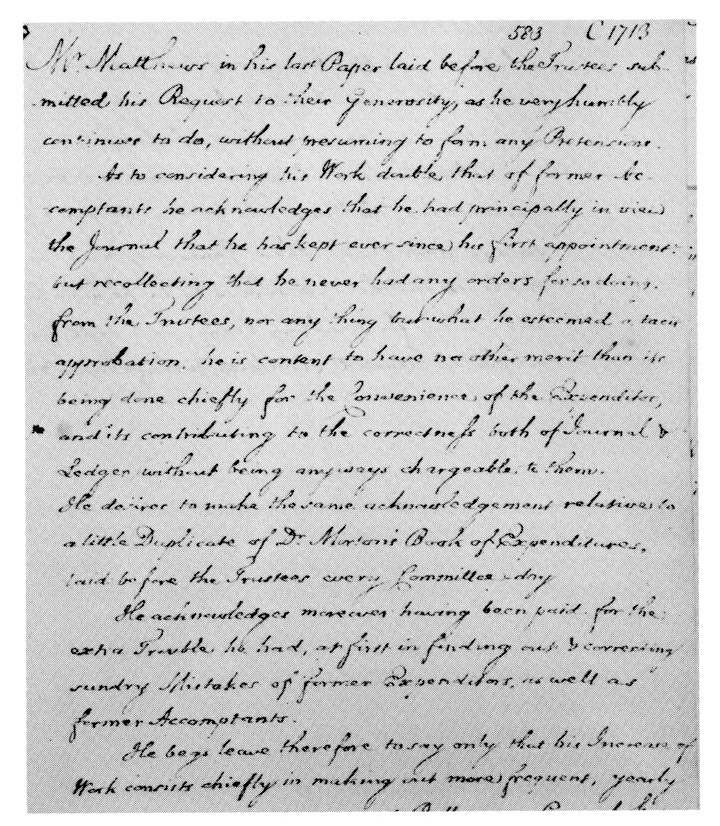 583 C 1713
Mr. Matthews in his last Paper laid before the Trustees sub-
mitted his Request to their Generosity, as he very humbly
continues to do, without presuming to form any Pretensions.
As to considering his Work double that of former Ac-
comptants he acknowledges that he had principally in view
the Journal that he has kept ever since his first appointment:
but recollecting that he never had any orders for so doing,
from the Trustees, nor any thing but what he esteemed a tacit
approbation, he is content to have no other merit than its
being done chiefly for the Convenience of the Expenditor,
and its contributing to the correctness both of Journal &
Ledger without being anyways chargeable to them.
He desires to make the same acknowledgement relative to
a little Duplicate of Dr. Morton's Book of Expenditures,
laid before the Trustees every Committee-day
He acknowledges moreover having been paid for the
extra Trouble he had, at first in finding out & correcting
sundry Mistakes of former Expenditors, as well as
former Accomptants.
He begs leave therefore to say only that his Increase of
Work consists chiefly in making out more frequent, yearly